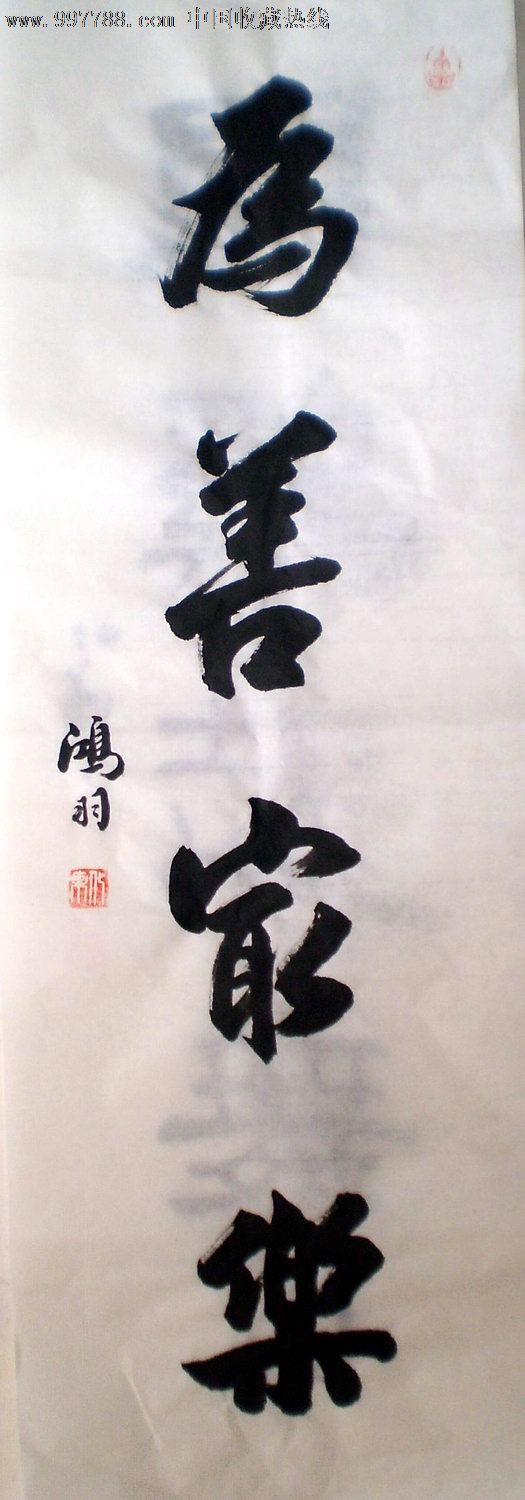 www.997788.com 中国收藏热线
為善冣樂
鴻羽